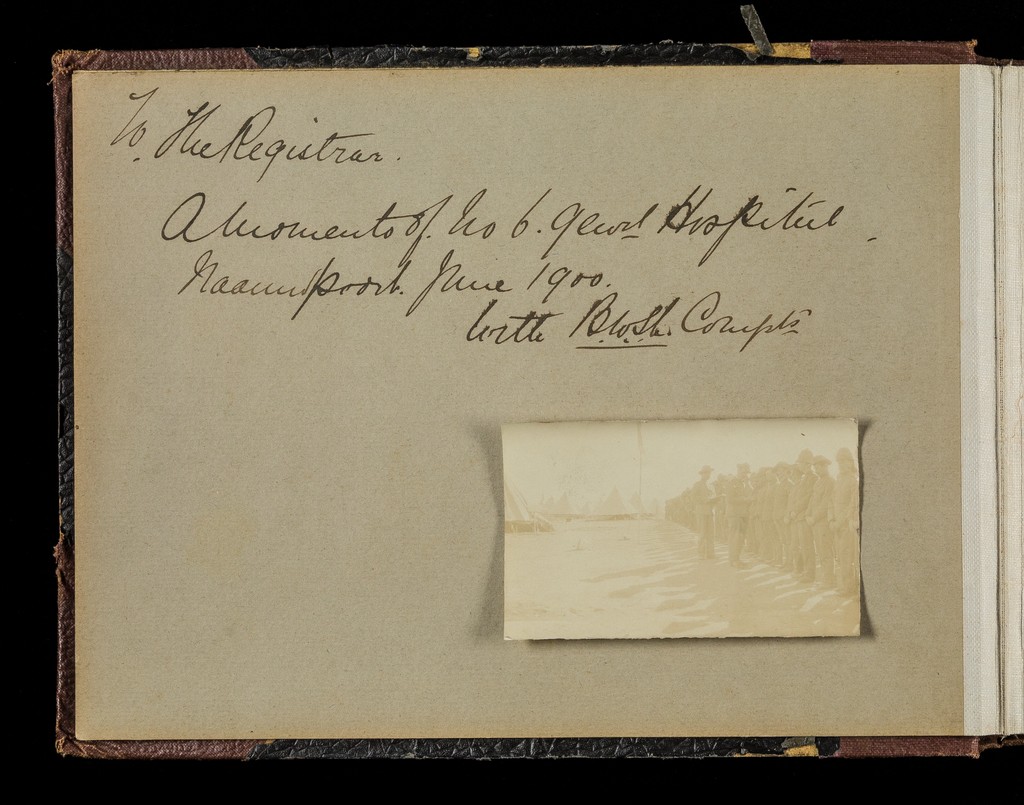 To. The Registrar.
A Momento of. No 6. Genrl Hospital.
Naauwpoort. June 1900.
With B.W.Sh. Compts